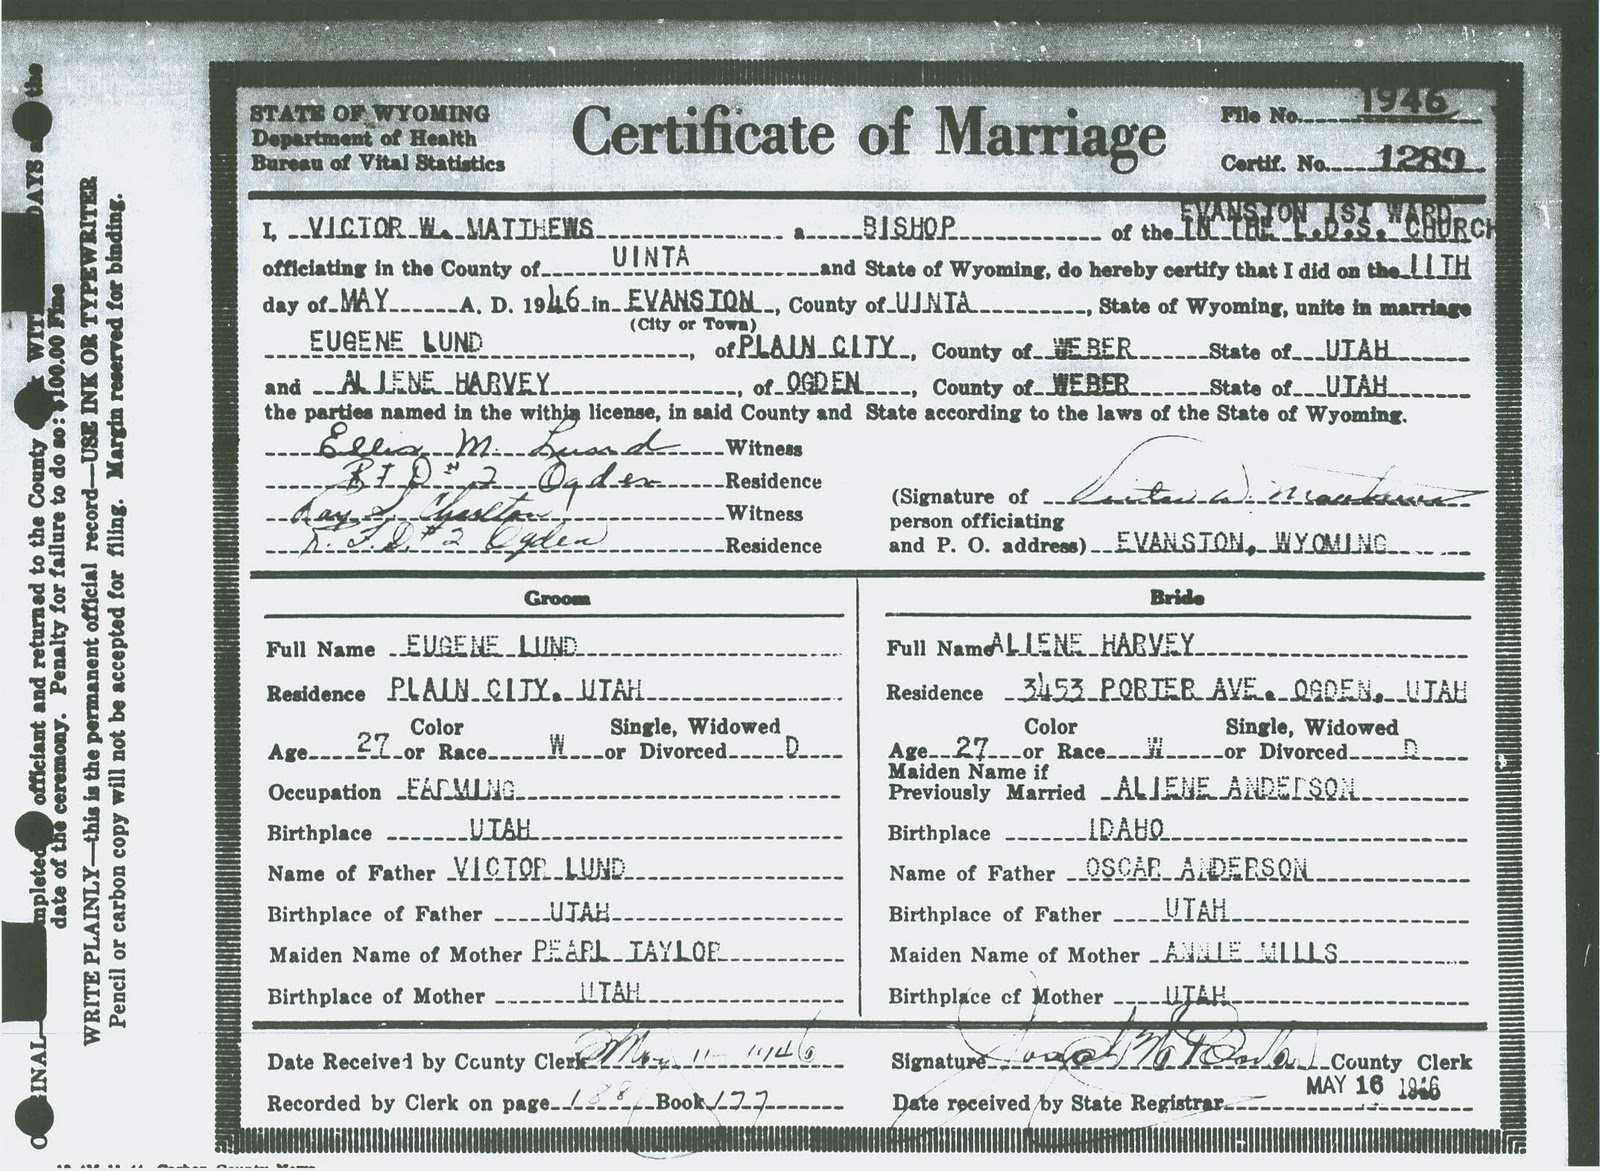 STATE OF WYOMING
Department of Health
Bureau of Vital Statistics
Certificate of Marriage
File No. 1946
Certif. No. 1289
EVANSTON 1ST WARD
I, VICTOR W. MATTHEWS a BISHOP of the IN THE L.D.S. CHURCH
officiating in the County of UINTA and State of Wyoming, do hereby certify that I did on the 11TH
day of MAY A. D. 1946 in EVANSTON, County of UINTA, State of Wyoming, unite in marriage
(City or Town)
EUGENE LUND, of PLAIN CITY, County of WEBER State of UTAH
and ALIENE HARVEY, of OGDEN, County of WEBER State of UTAH
the parties named in the within license, in said County and State according to the laws of the State of Wyoming.
Ellis M. Lund Witness
R F D # 2 Ogden Residence
Ray S. Charlton Witness
R. F. D. # 2 Ogden Residence
(Signature of Victor W. Matthews
person officiating
and P. O. address) EVANSTON, WYOMING
Groom
Full Name EUGENE LUND
Residence PLAIN CITY, UTAH
Color Single, Widowed
Age 27 or Race W or Divorced D
Occupation FARMING
Birthplace UTAH
Name of Father VICTOR LUND
Birthplace of Father UTAH
Maiden Name of Mother PEARL TAYLOR
Birthplace of Mother UTAH
Bride
Full Name ALIENE HARVEY
Residence 3453 PORTER AVE. OGDEN, UTAH
Color Single, Widowed
Age 27 or Race W or Divorced D
Maiden Name if
Previously Married ALIENE ANDERSON
Birthplace IDAHO
Name of Father OSCAR ANDERSON
Birthplace of Father UTAH
Maiden Name of Mother ANNIE MILLS
Birthplace of Mother UTAH
Date Received by County Clerk May 11 1946
Recorded by Clerk on page 188 Book 177
Signature County Clerk
MAY 16 1946
Date received by State Registrar
officiant and returned to the County DAYS the
date of the ceremony. Penalty for failure to do so: $100.00 Fine
WRITE PLAINLY—this is the permanent official record—USE INK OR TYPEWRITER
Pencil or carbon copy will not be accepted for filing. Margin reserved for binding.